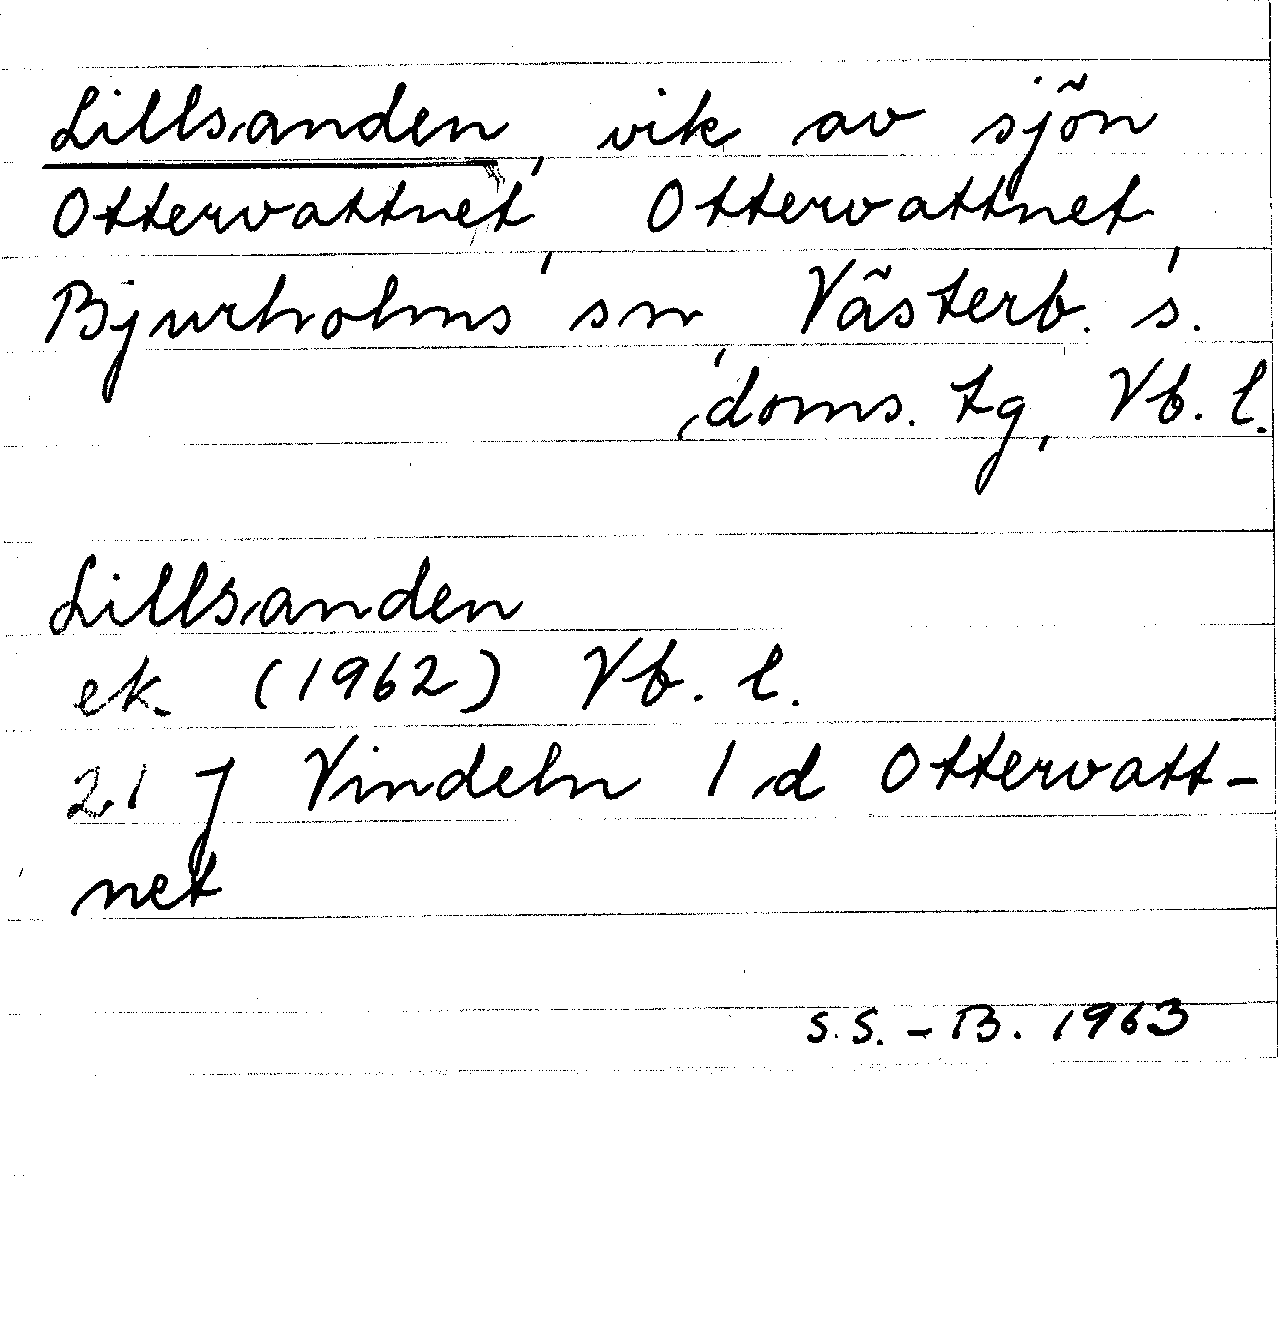 Lillsanden, vik av sjön
Ottervattnet, Ottervattnet,
Bjurholms sn, Västerb. s.
doms. tg, Vb. l.
Lillsanden
ek. (1962) Vb. l.
21 J Vindeln 1 d Ottervatt-
net
S.S.-B. 1963